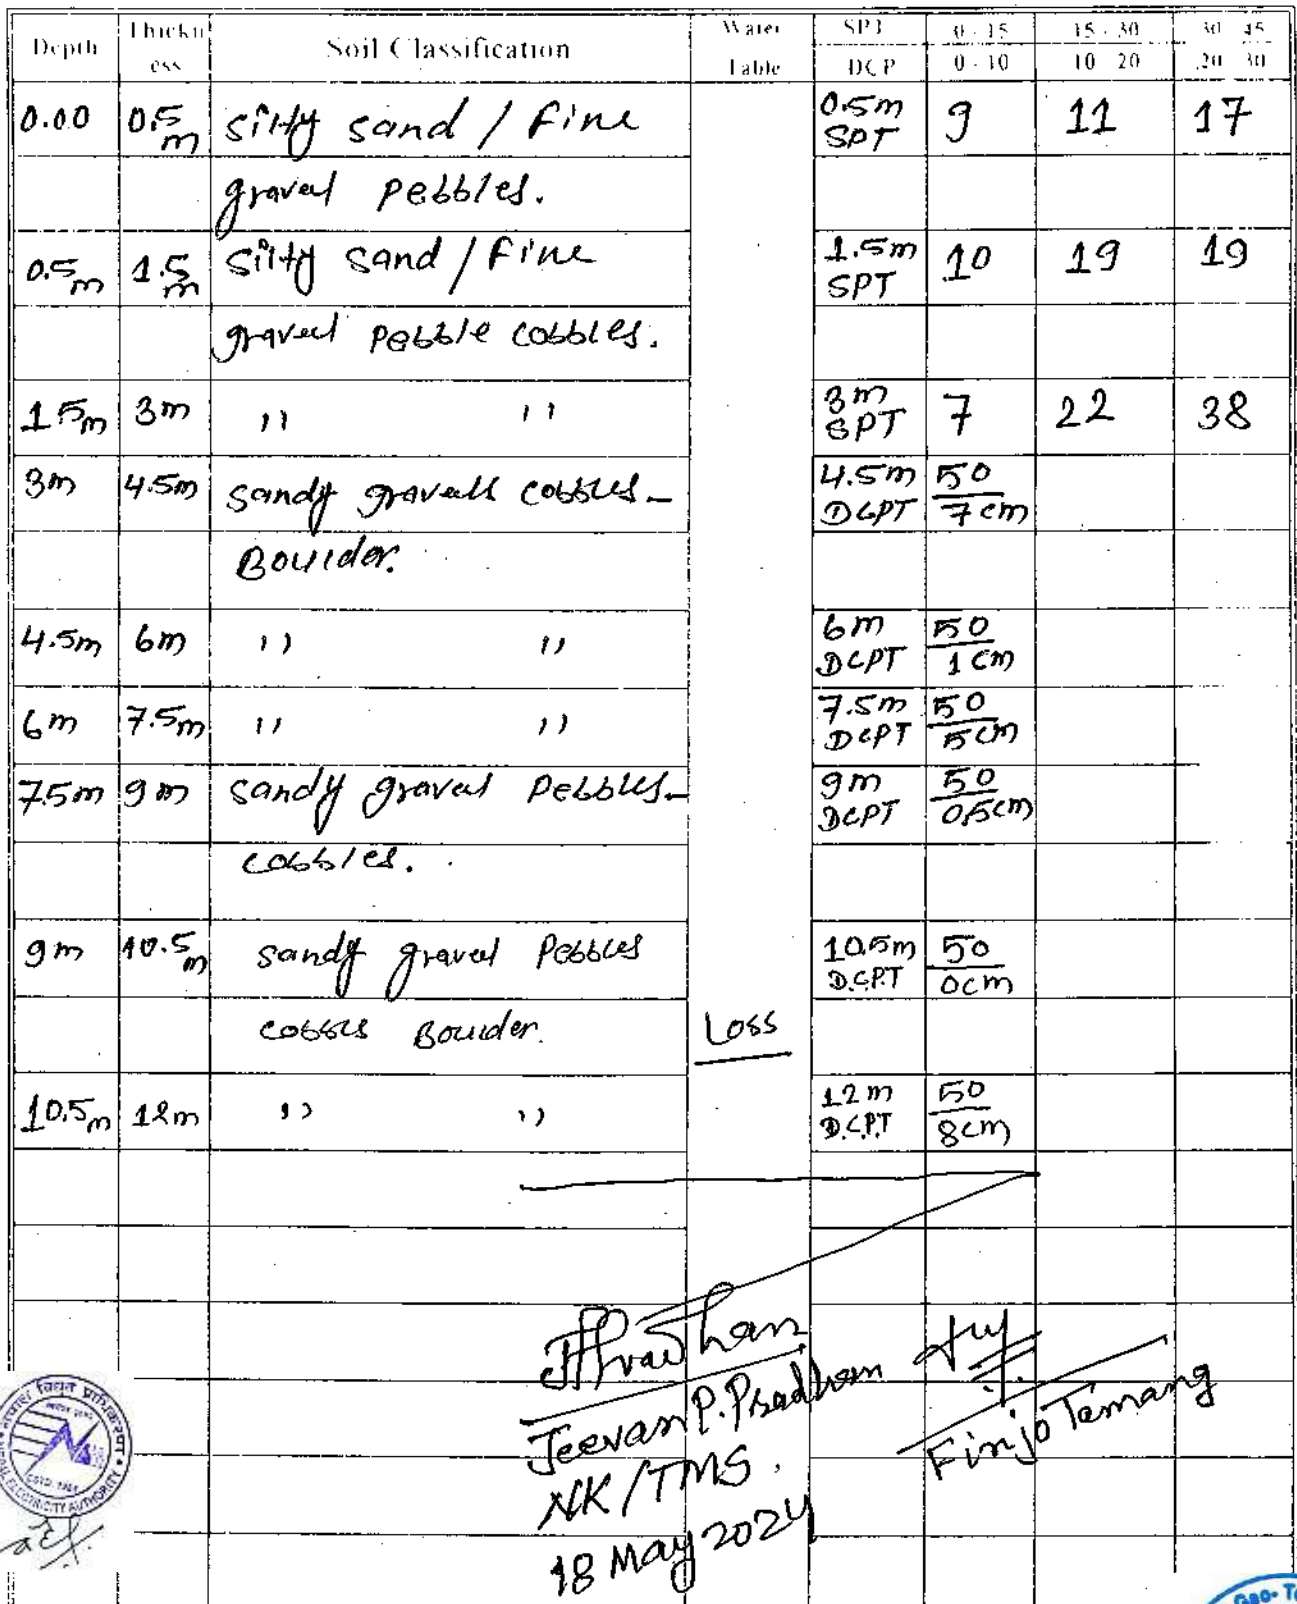 Depth Thickn Soil Classification Water SPT 0 - 15 15 - 30 30 45
ess Table DCP 0 - 10 10 20 20 30
0.00 0.5 m silty sand / fine 0.5m SPT 9 11 17
gravel pebbles.
0.5m 1.5 m silty sand / fine 1.5m SPT 10 19 19
gravel pebble cobbles.
1.5m 3m ,, ,, 3m SPT 7 22 38
3m 4.5m sandy gravels cobbles- 4.5m DCPT 50/7cm
Boulder.
4.5m 6m ,, ,, 6m DCPT 50/1cm
6m 7.5m ,, ,, 7.5m DCPT 50/5cm
7.5m 9m sandy gravel Pebbles- 9m DCPT 50/0.5cm
cobbles.
9m 10.5m sandy gravel Pebbles 10.5m D.C.P.T 50/0cm
cobbles Boulder. Loss
10.5m 12m ,, ,, 12m D.C.P.T 50/8cm
Jeevan P. Pradhan
NK/TMS.
18 May 2024
Finjo Tamang
विद्युत प्राधिकरण
ELECTRICITY AUTHORITY
Geo-